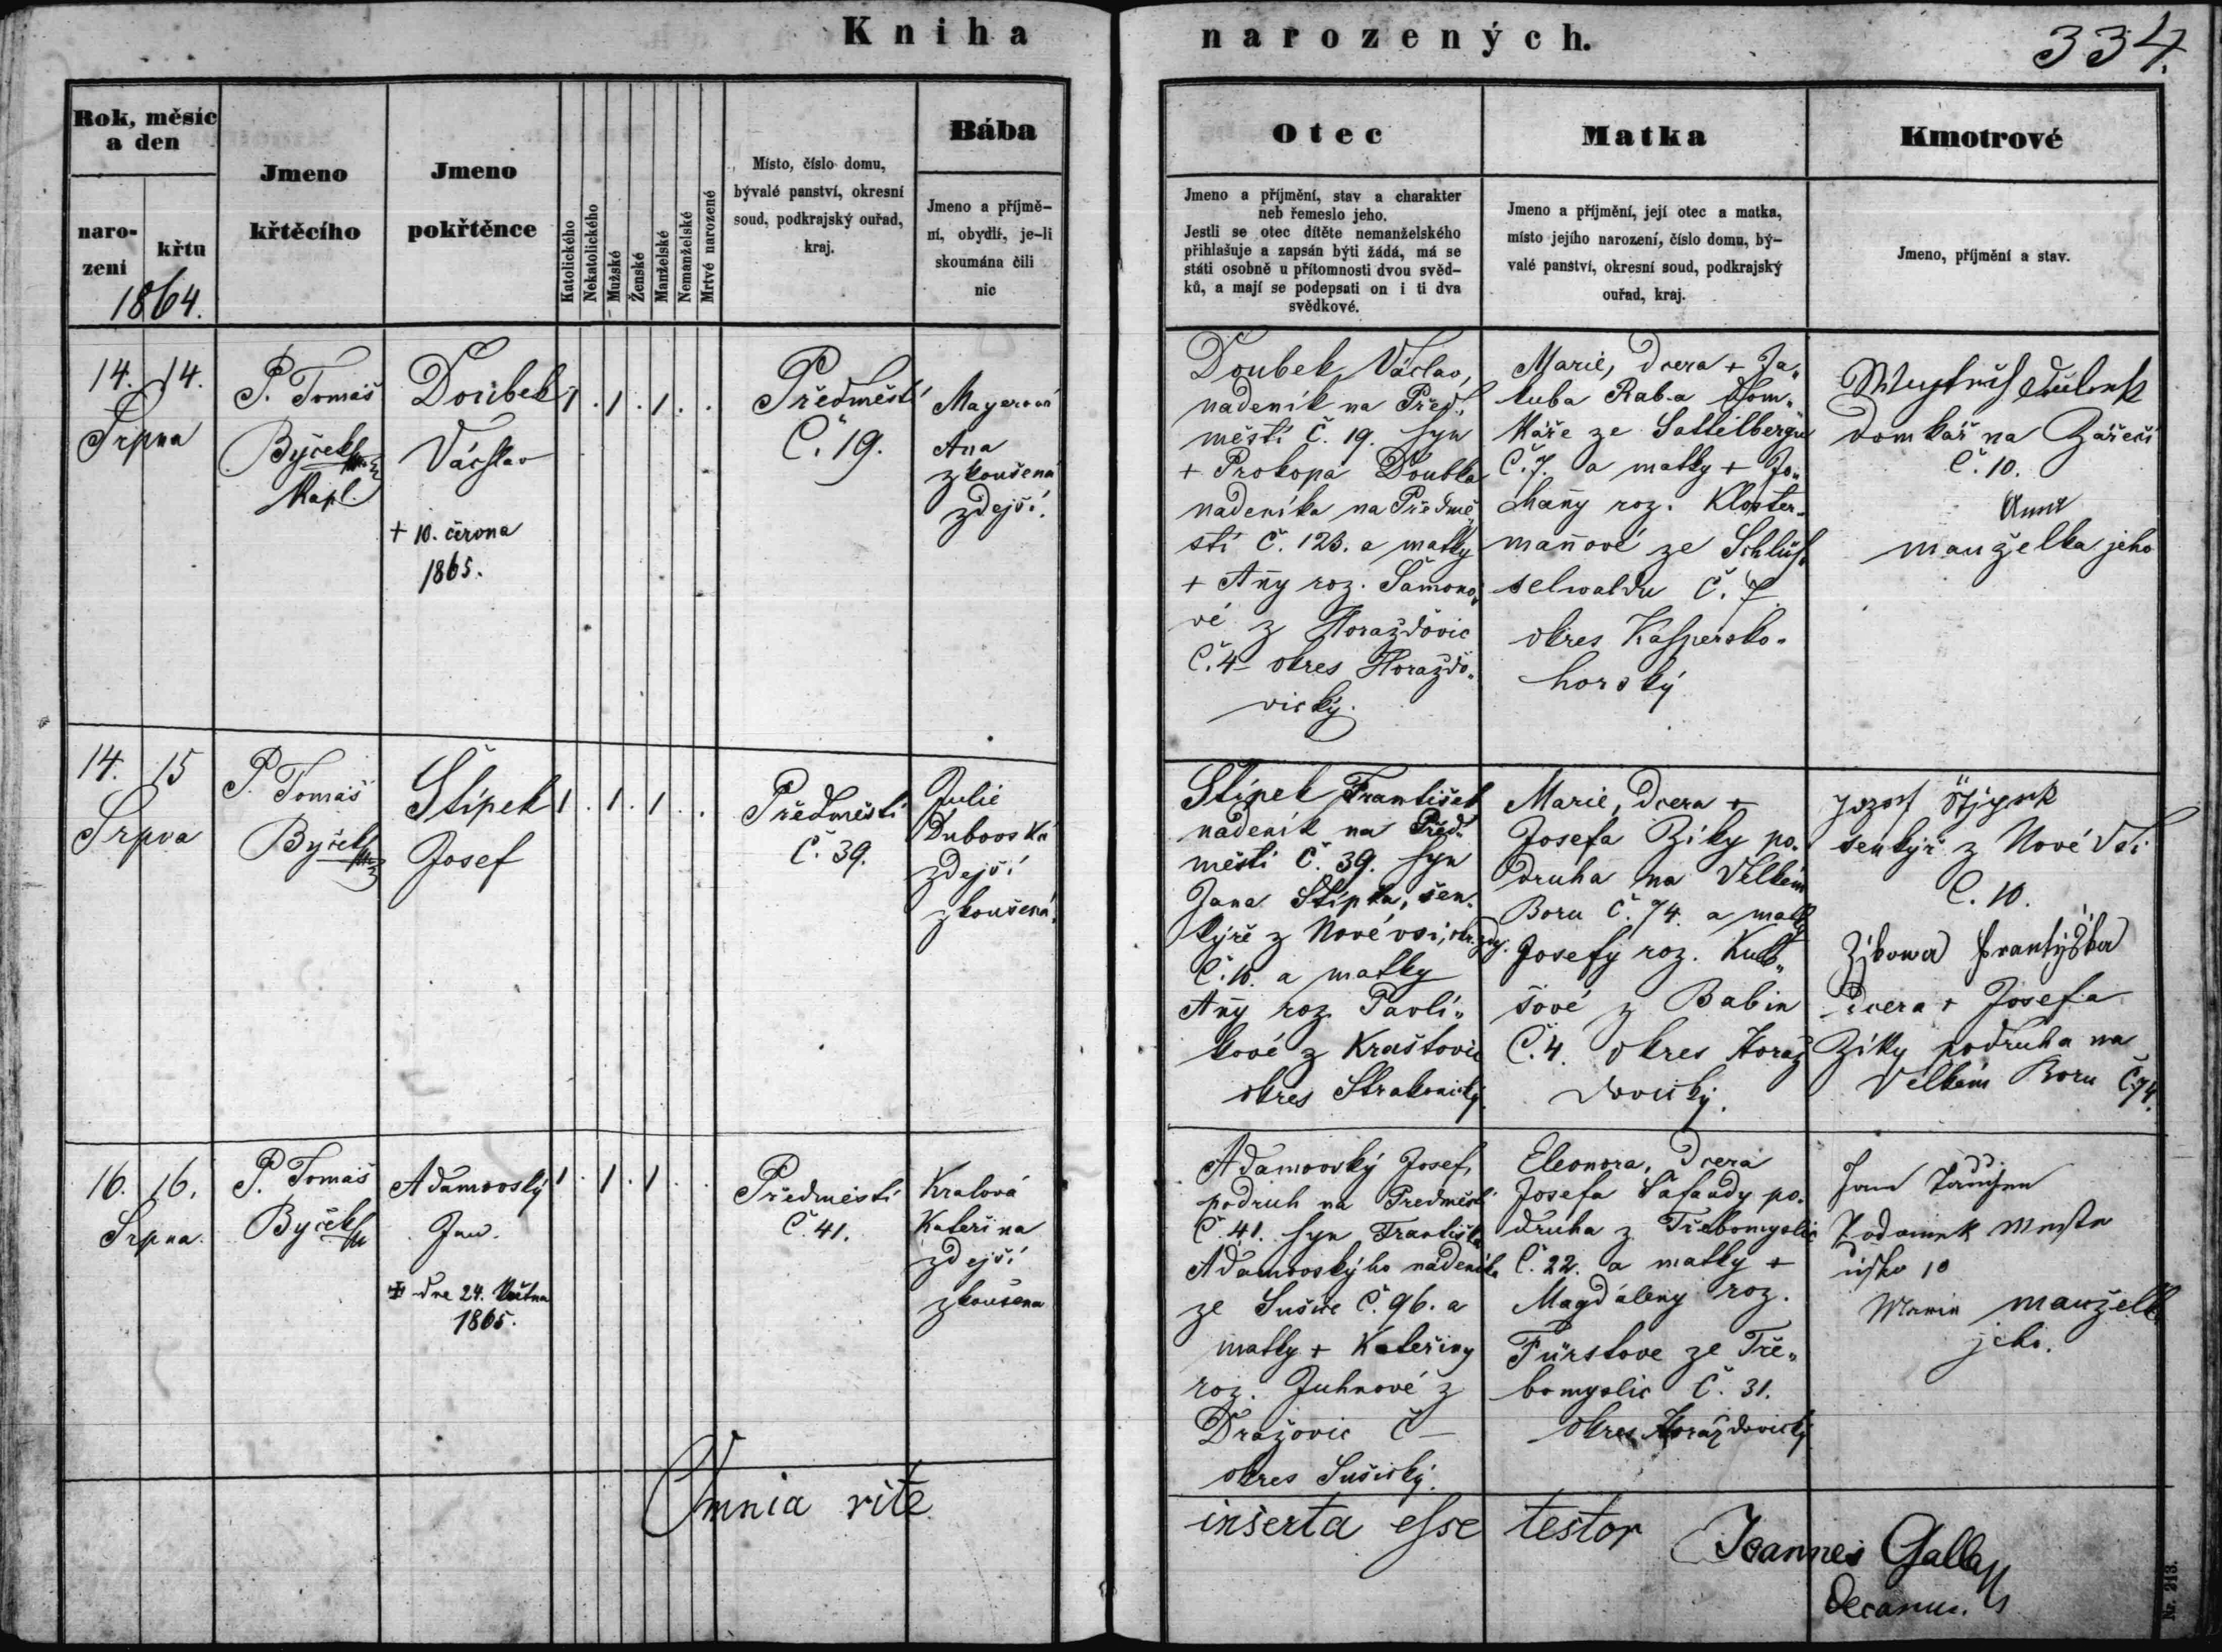 Kniha narozených.
334.
Rok, měsíc
a den
naro-
zení
křtu
1864.
Jmeno
křtěcího
Jmeno
pokřtěnce
Katolického
Nekatolického
Mužské
Ženské
Manželské
Nemanželské
Mrtvé narozené
Místo, číslo domu,
bývalé panství, okresní
soud, podkrajský ouřad,
kraj.
Bába
Jmeno a příjmě-
ní, obydlí, je-li
skoumána čili
nic
Otec
Jmeno a příjmění, stav a charakter
neb řemeslo jeho.
Jestli se otec dítěte nemanželského
přihlašuje a zapsán býti žádá, má se
státi osobně u přítomnosti dvou svěd-
ků, a mají se podepsati on i ti dva
svědkové.
Matka
Jmeno a příjmění, její otec a matka,
místo jejího narození, číslo domu, bý-
valé panství, okresní soud, podkrajský
ouřad, kraj.
Kmotrové
Jmeno, příjmění a stav.
14. 14.
Srpna
P. Tomáš
Byček
Kapl.
Doubek
Václav
+ 10. června
1865.
1 . 1 . 1 . .
Předměstí
Č. 19.
Mayerová
Ana
zkoušená
zdejší.
Doubek Václav,
nadeník na Před-
městí Č. 19. syn
+ Prokopa Doubka
nadeníka na Předmě-
stí Č. 123. a matky
+ Anny roz. Šamono-
vé z Horažďovic
Č. 4 okres Horažďo-
vický.
Marie, dcera + Ja-
kuba Rab-a dom-
káře ze Sattelbergu
Č. 7. a matky + Jo-
hany roz. Kloster-
manové ze Schlüs-
selwaldu Č. 7
okres Kašpersko-
horský
domkář na Zářečí
Č. 10.
Anna
manželka jeho
14. 15
Srpna
P. Tomáš
Byček
Štípek
Josef
1 . 1 . 1 . .
Předměstí
Č. 39.
Julie
Dubovská
zdejší
zkoušená.
Štípek František
nádeník na Před-
městí Č. 39. syn
Jana Štípka, šen-
kýře z Nové vsi,
Č. 10. a matky
Anny roz. Pavlí-
kové z Kraštovic
okres Strakonický.
Marie, dcera +
Josefa Ziky po-
druha na Velkém
Boru Č. 74. a matky
Josefy roz.
šové z Babin
Č. 4. okres Horaž
ďovický.
Jozef Štjpek
šenkýř z Nové Vsi
Č. 10.
Zjkowa Frantyška
dcera + Josefa
Ziky podruha na
Velkém Boru Č. 74.
16. 16.
Srpna.
P. Tomáš
Byček
Adamovský
Jan.
+ dne 24. Května
1865.
1 . 1 . 1 . .
Předměstí
Č. 41.
Kralová
Kateřina
zdejší
zkoušena
Adamovský Josef,
podruh na Předměstí
Č. 41. syn Františka
Adamovskýho nádeníka
ze Sušice Č. 96. a
matky + Kateřiny
roz. Juhnové z
Dražovic Č —
okres Sušický.
Eleonora, dcera
Josefa Šafandy po-
druha z Třebomyslic
Č. 22. a matky +
Magdaleny roz.
Fürstove ze Tře-
bomyslic Č. 31.
okres Horažďovický
Jan
10
Marie manželka
jeho.
Omnia rite
inserta esse testor Joannes Gallaß
Decanus.
Nr. 213.